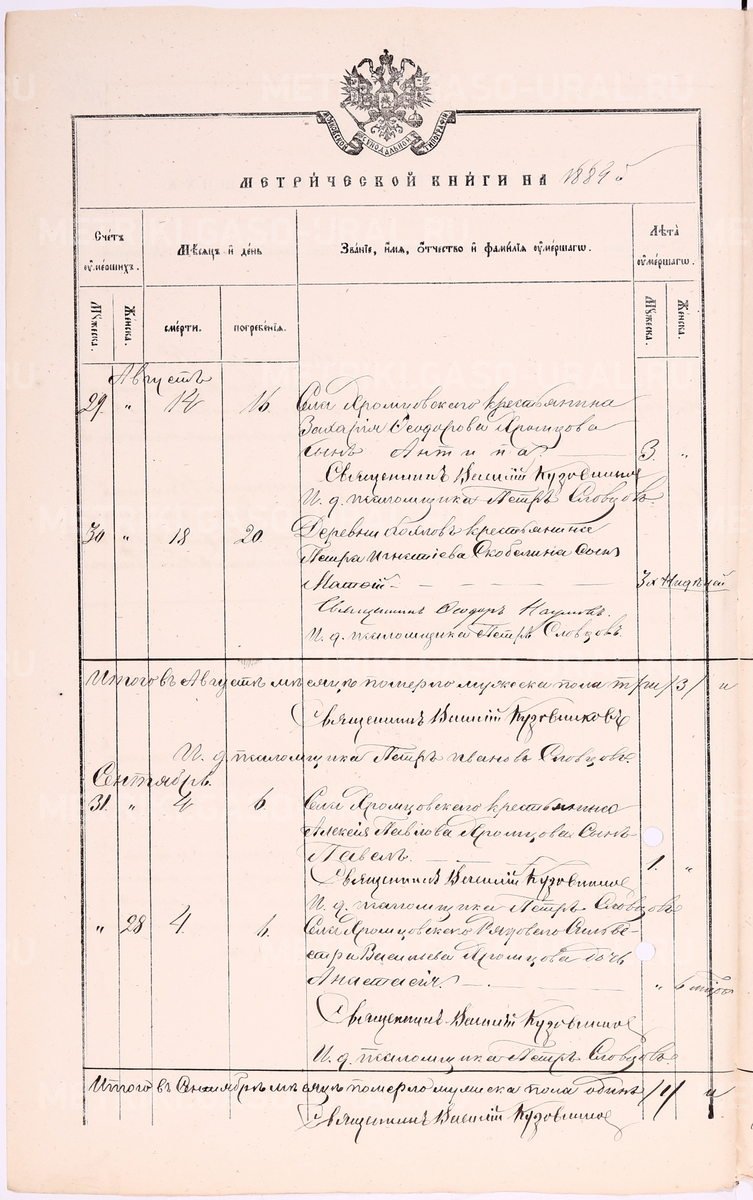 МОСКОВСКОЙ СИНОДАЛЬНОЙ ТИПОГРАФІИ
МЕТРИ́ЧЕСКОЙ КНИ́ГИ НА 1889 г.
Сче́тъ ᲂу҆ме́ршихъ.
Мѣ́сяцъ и҆ де́нь
Зва́ніе, и҆́мя, ѻ҆́тчество и҆ фами́лія ᲂу҆ме́ршагѡ.
Лѣ́та ᲂу҆ме́ршагѡ.
Мꙋ́жеска.
Же́нска.
сме́рти.
погребе́нія.
Мꙋ́жеска.
Же́нска.
Августъ
29. „ 14 16. Села Яромцовского крестьянина
Захарія Ѳеодорова Яромцова
сынъ Антипа 3. „
Священникъ Василій Кузовниковъ
И. д. псаломщика Петръ Словцовъ.
30 „ 18 20. Деревни крестьянина
Петра Игнатіева Скобелина сынъ
Матѳій 3х недѣлей
Священникъ Ѳеодоръ Наумовъ.
И. д. псаломщика Петръ Словцовъ.
Итого въ Августѣ мѣсяцѣ померло мужеска пола три /3/ и
Священникъ Василій Кузовниковъ
И. д. псаломщика Петръ Ивановъ Словцовъ.
Сентябрь.
31. „ 4 6. Села Яромцовского крестьянина
Алексія Павлова Яромцова сынъ
Павелъ 1. „
Священникъ Василій Кузовниковъ
И. д. псаломщика Петръ Словцовъ
„ 28 4. 6. Села Яромцовского Рядового Сильве-
стра Васильева Яромцова дочь
Анастасія. „ 6
Священникъ Василій Кузовниковъ
И. д. псаломщика Петръ Словцовъ.
Итого въ Сентябрѣ мѣсяцѣ померло мужеска пола одинъ /1/ и
Священникъ Василій Кузовниковъ